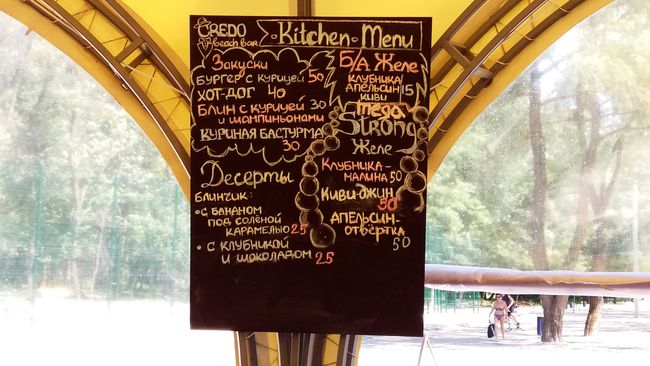 CREDO
beach bar
Kitchen Menu
Закуски
Бургер с курицей 50
Хот-дог 40
Блин с курицей 30
и шампиньонами
Куриная бастурма
30
Десерты
Блинчик:
• с бананом
под солёной
карамелью 25
• с клубникой
и шоколадом 25
Б/А Желе
Клубника
Апельсин 15
Киви
mega
Strong
Желе
Клубника-
малина 50
Киви-джин
50
Апельсин-
отвёртка
50